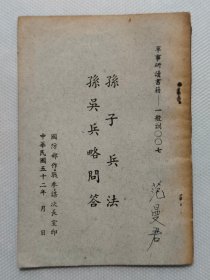 軍事研讀書籍——一般訓〇〇七
孫子兵法
孫吳兵略問答
國防部作戰參謀次長室印
中華民國五十二年　月　日
范曼君